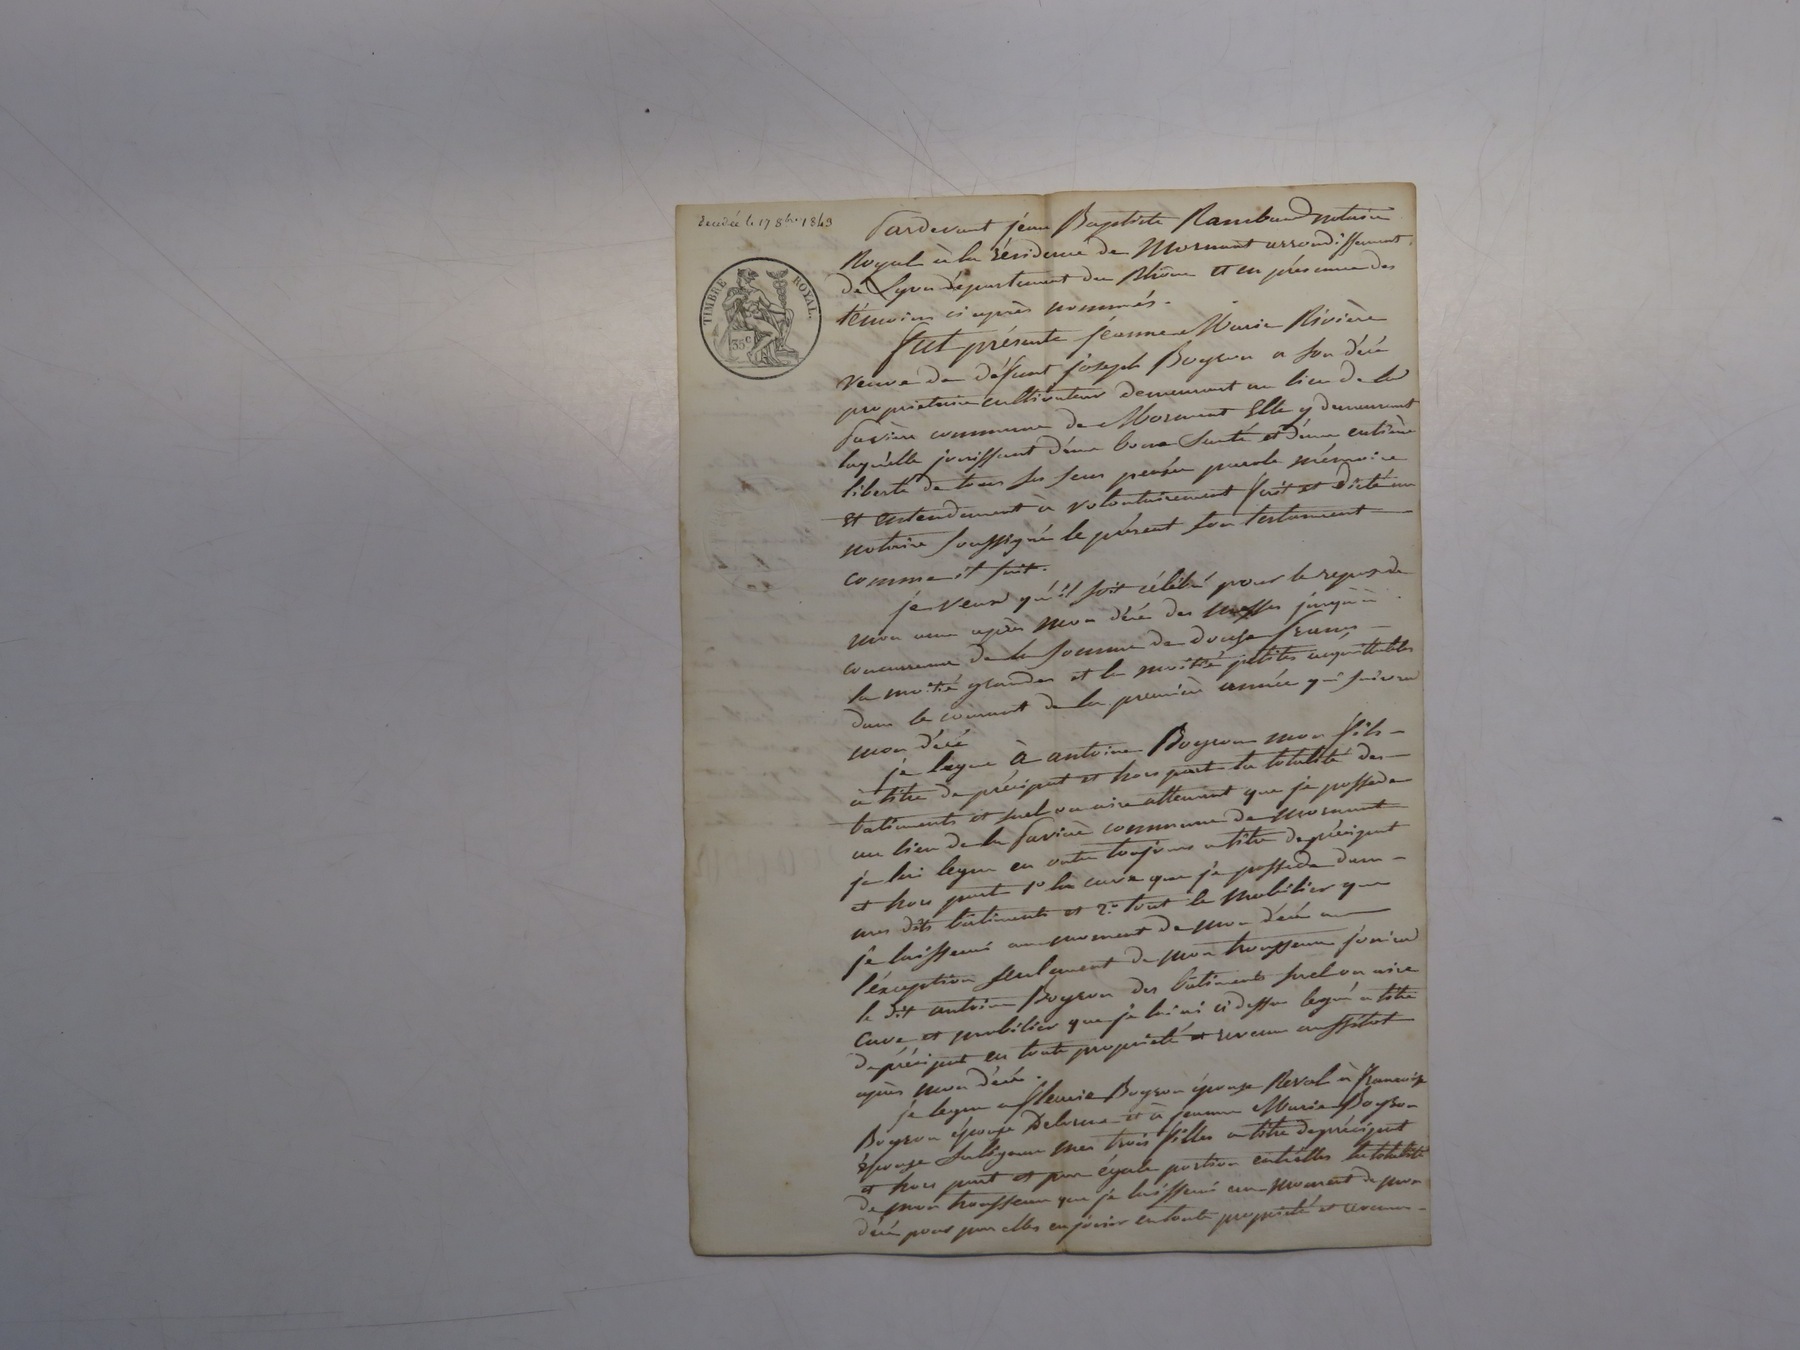 decédée le 17 8bre 1843
TIMBRE ROYAL.
35c
Pardevant jéan Baptiste Rambaud notaire
Royal à la résidence de Mornant arrondissement
de Lyon département du Rhône et en présence des
témoins ci après nommés.
Fut présente jéanne Marie Rivière
veuve de défunt joseph Boyron a son décé
propriétaire cultivateur demeurant au lieu de la
commune de Mornant Elle y demeurant
laquélle jouissant d'une bonne santé et d'une entière
liberté de tous ses sens pensée parole mémoire
et entendement à volontairement fait et dicté au
notaire soussigné le présent son testament
comme il suit.
je veux qu'il soit célébré pour le repos de
mon ame après mon décé des messes jusqu'à
concurrence de la somme de douze francs
la moitié grandes et la moitié petites acquittables
dans le courant de la première année qui suivra
mon décé
je lègue à antoine Boyron mon fils
à titre de préciput et hors part la totalité des
batiments et suel ou aire attenant que je possede
au lieu de la commune de Mornant
je lui legue en outre toujours a titre de préciput
et hors part 1o la cuve que je possede dans
mes dits bâtiments et 2o tout le mobilier que
je laisserai au moment de mon décé a
l'éxception seulement de mon trousseau jouira
le dit antoine Boyron des bâtiments suel ou aire
cuve et mobilier que je lui ai ci dessus legué a titre
de préciput en toute propriété et revenu aussitot
après mon décé.
je legue a fleurie Boyron épouse Reval à francoise
Boyron épouse Delorme et à jeanne Marie Boyron
épouse mes trois filles a titre de préciput
et hors part et par égale portion entr'elles la totalité
de mon trousseau que je laisserai au moment de mon
décé pour par elles en jouir en toute propriété et revenu